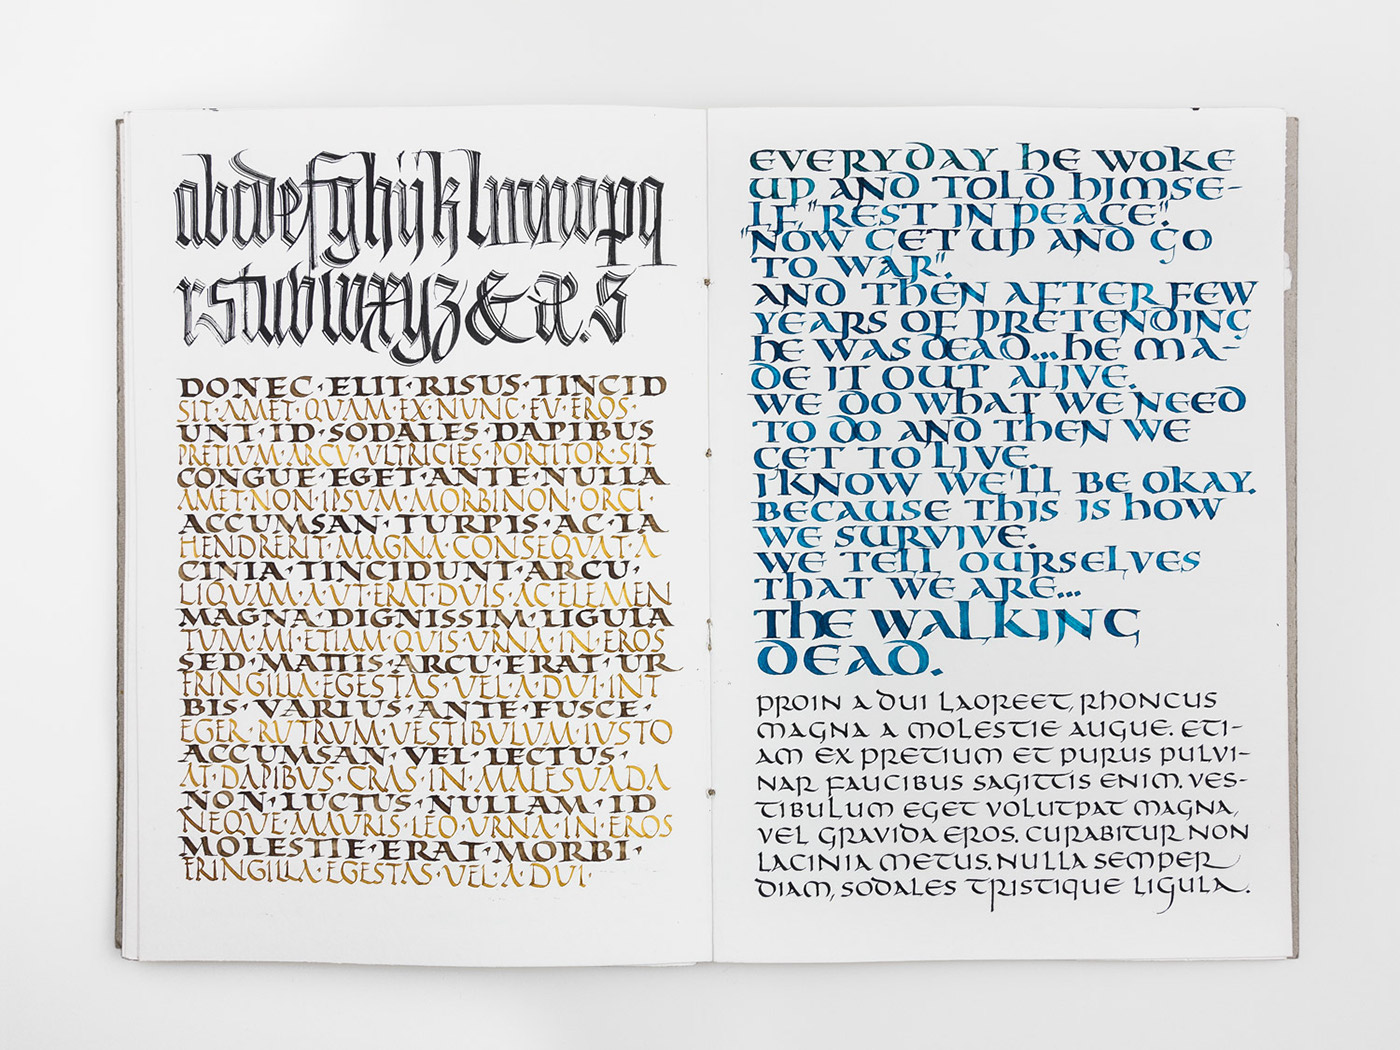 abcdefghijklmnopq
rstuvwxyz&æ.s
DONEC·ELIT·RISUS·TINCID
SIT·AMET·QUAM·EX·NUNC·EV·EROS·
UNT·ID·SODALES·DAPIBUS
PRETIVM·ARCV·ULTRICIES·PORTITOR·SIT
CONGUE·EGET·ANTE·NULLA
AMET·NON·IPSVM·MORBI·NON·ORCI·
ACCUMSAN·TURPIS·AC·LA
HENDRERIT·MAGNA·CONSEQVAT·A
CINIA·TINCIDUNT·ARCU·
LIQUAM·A·UT·ERAT·DVIS·AC·ELEMEN
MAGNA·DIGNISSIM·LIGULA
TVM·MI·ETIAM·QUIS·VRNA·IN·EROS
SED·MATTIS·ARCU·ERAT·UR
FRINGILLA·EGESTAS·VEL·A·DVI·INT
BIS·VARIUS·ANTE·FUSCE·
EGER·RUTRUM·VESTIBULUM·IVSTO
ACCUMSAN·VEL·LECTUS·
AT·DAPIBVS·CRAS·IN·MALESVADA
NON·LUCTUS·NULLAM·ID
NEQUE·MAVRIS·LEO·VRNA·IN·EROS
MOLESTIE·ERAT·MORBI·
FRINGILLA·EGESTAS·VEL·A·DVI·
EVERYDAY HE WOKE
UP AND TOLD HIMSE-
LF, "REST IN PEACE".
"NOW GET UP AND GO
TO WAR".
AND THEN AFTER FEW
YEARS OF PRETENDING
HE WAS DEAD...HE MA-
DE IT OUT ALIVE.
WE DO WHAT WE NEED
TO DO AND THEN WE
GET TO LIVE.
I KNOW WE'LL BE OKAY.
BECAUSE THIS IS HOW
WE SURVIVE.
WE TELL OURSELVES
THAT WE ARE...
THE WALKING
DEAD.
PROIN A DUI LAOREET, RHONCUS
MAGNA A MOLESTIE AUGUE. ETI-
AM EX PRETIUM ET PURUS PULVI-
NAR FAUCIBUS SAGITTIS ENIM. VES-
TIBULUM EGET VOLUTPAT MAGNA,
VEL GRAVIDA EROS. CURABITUR NON
LACINIA METUS. NULLA SEMPER
DIAM, SODALES TRISTIQUE LIGULA.